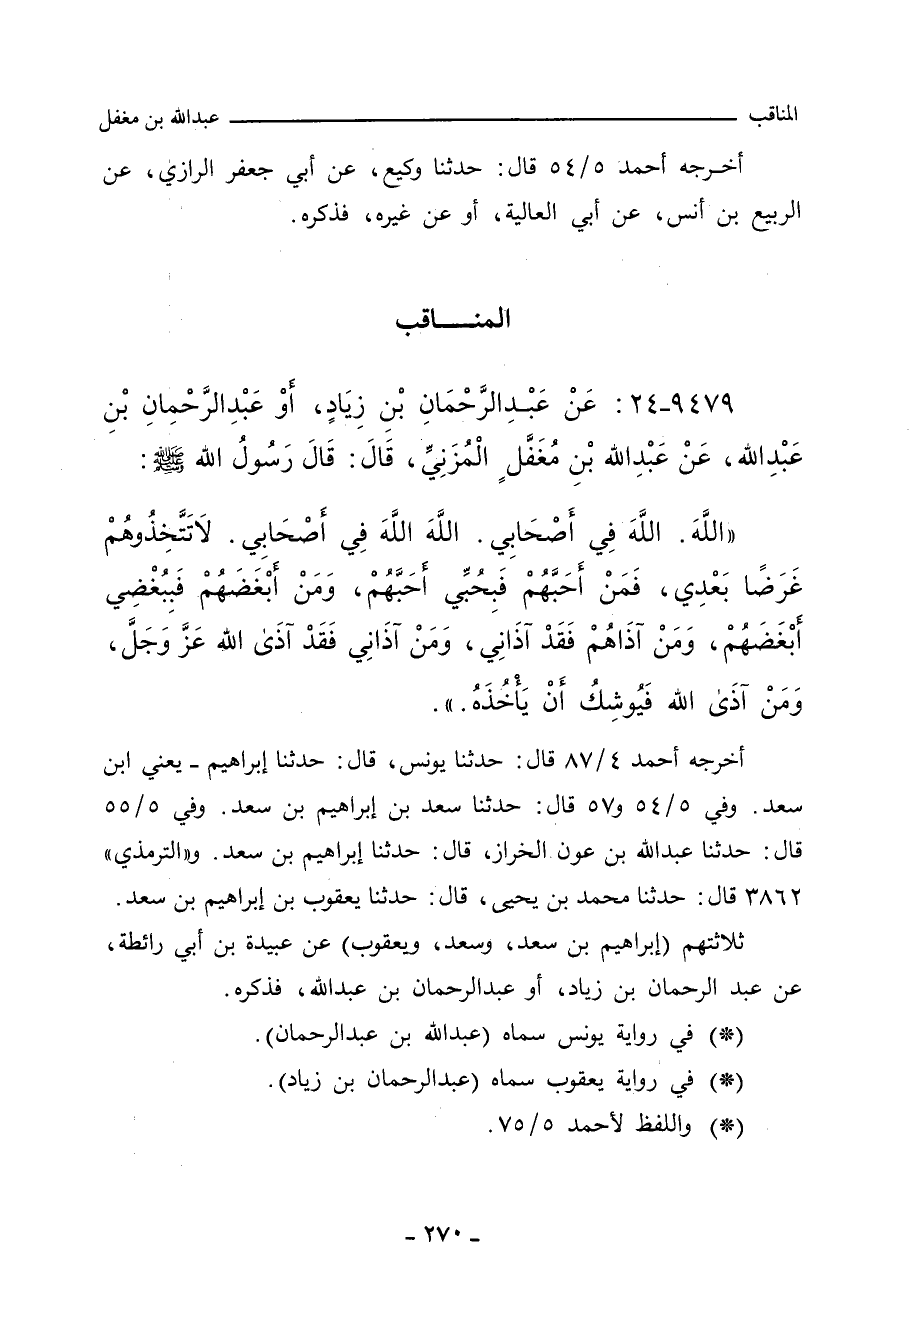 المناقب ــــــــــــــــ عبدالله بن مغفل
أخـرجه أحمد ٥٤/٥ قال: حدثنا وكيع، عن أبي جعفر الرازي، عن
الربيع بن أنس، عن أبي العالية، أو عن غيره، فذكره.
المنـــــاقب
٩٤٧٩-٢٤: عَنْ عَبْـدِالرَّحْمَانِ بْنِ زِيَادٍ، أَوْ عَبْدِالرَّحْمِانِ بْنِ
عَبْدِالله، عَنْ عَبْدِالله بْنِ مُغَفَّلٍ الْمُزَنِيِّ، قَالَ: قَالَ رَسُولُ الله ﷺ:
«اللَّهَ. اللَّهَ فِي أَصْحَابِي. اللَّهَ اللَّهَ فِي أَصْحَابِي. لَاتَتَّخِذُوهُمْ
غَرَضًا بَعْدِي، فَمَنْ أَحَبَّهُمْ فَبِحُبِّي أَحَبَّهُمْ، وَمَنْ أَبْغَضَهُمْ فَبِبُغْضِي
أَبْغَضَهُمْ، وَمَنْ آذَاهُمْ فَقَدْ آذَانِي، وَمَنْ آذَانِي فَقَدْ آذَىٰ الله عَزَّ وَجَلَّ،
وَمَنْ آذَىٰ الله فَيُوشِكُ أَنْ يَأْخُذَهُ.».
أخرجه أحمد ٨٧/٤ قال: حدثنا يونس، قال: حدثنا إبراهيم - يعني ابن
سعد. وفي ٥٤/٥ و٥٧ قال: حدثنا سعد بن إبراهيم بن سعد. وفي ٥٥/٥
قال: حدثنا عبدالله بن عون الخراز، قال: حدثنا إبراهيم بن سعد. و«الترمذي»
٣٨٦٢ قال: حدثنا محمد بن يحيى، قال: حدثنا يعقوب بن إبراهيم بن سعد.
ثلاثتهم (إبراهيم بن سعد، وسعد، ويعقوب) عن عبيدة بن أبي رائطة،
عن عبد الرحمان بن زياد، أو عبدالرحمان بن عبدالله، فذكره.
(*) في رواية يونس سماه (عبدالله بن عبدالرحمان).
(*) في رواية يعقوب سماه (عبدالرحمان بن زياد).
(*) واللفظ لأحمد ٧٥/٥.
- ٢٧٠ -